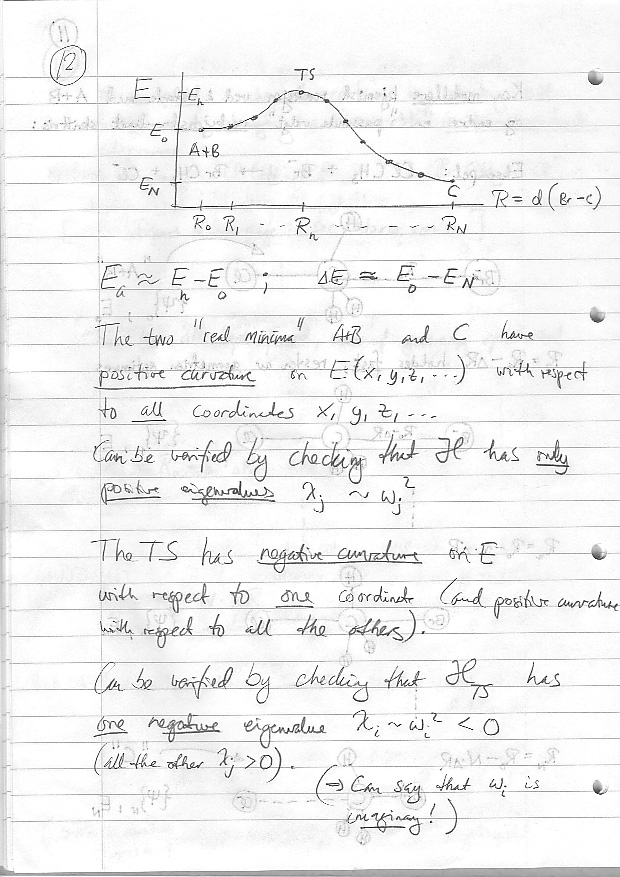 12
TS
E
Eₙ
E₀
A+B
E_N
C
R₀ R₁ -- Rₙ ------ R_N
R = d(Br-C)
Eₐ ≈ Eₙ - E₀ ; ΔE ≈ E₀ - E_N
The two "real minima" A+B and C have
positive curvature on E(x, y, z, ...) with respect
to all coordinates x, y, z, ...
Can be verified by checking that ℋ has only
positive eigenvalues λⱼ ~ ωⱼ²
The TS has negative curvature on E
with respect to one coordinate (and positive curvature
with respect to all the others).
Can be verified by checking that ℋ_TS has
one negative eigenvalue λᵢ ~ ωᵢ² < 0
(all the other λⱼ > 0).
(→ Can say that ωᵢ is
imaginary!)